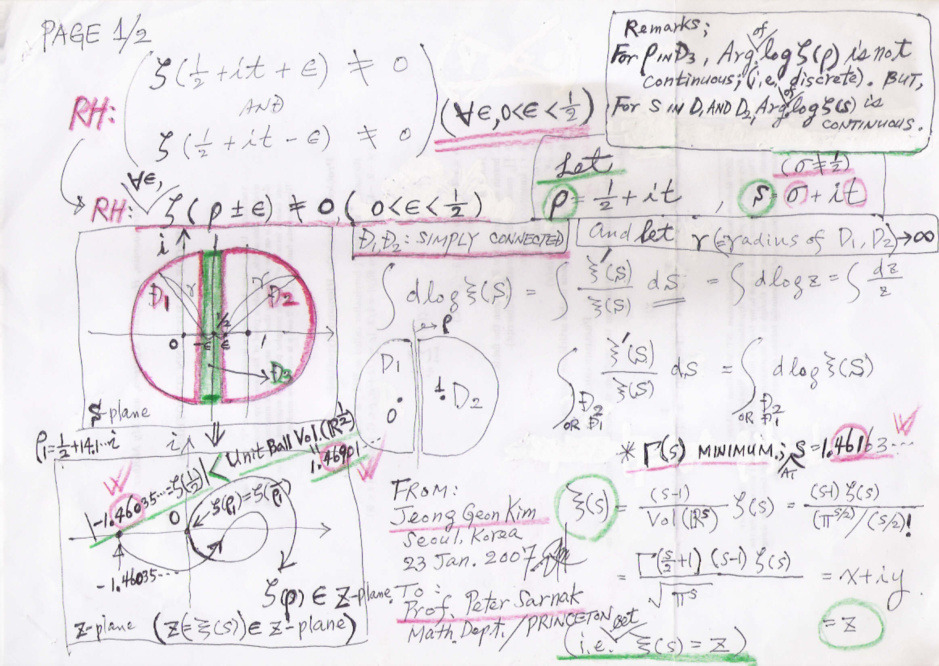 PAGE 1/2
RH: ( ζ(½+it+ϵ) ≠ 0
AND
ζ(½+it-ϵ) ≠ 0 ) (∀ϵ, 0<ϵ<½)
Remarks;
For ρ in D3, Arg of log ζ(ρ) is not
continuous; (i.e. discrete). BUT,
For s in D1 AND D2, Arg of log ζ(s) is
CONTINUOUS.
∀ϵ,
RH: ζ(ρ±ϵ) ≠ 0, (0<ϵ<½)
Let
ρ = ½+it , s = σ+it
(σ≠½)
D1, D2: SIMPLY CONNECTED
And let r (radius of D1, D2) → ∞
i
D1 r r D2
0 -ϵ ½ ϵ 1
D3
S-plane
∫ d log ξ(s) = ∫ ξ'(s)/ξ(s) ds = ∫ d log z = ∫ dz/z
ρ
D1
0
1 D2
∫ D2 OR D1 ξ'(s)/ξ(s) ds = ∫ D2 OR D1 d log ξ(s)
ρ1=½+14.1…i
i
* Γ(s) MINIMUM; AT s=1.46163…
|-1.46035…=ζ(½)| < Unit Ball Vol.(ℝ^½)
1.46901
0
ζ(ρ1)=ζ(ρ̄1)
-1.46035…
ζ(ρ) ∈ Z-plane.
Z-plane (Z∈ξ(s))∈ Z-plane)
FROM:
Jeong Geon Kim
Seoul. Korea
23 Jan. 2007
To:
Prof. Peter Sarnak
Math. Dept./PRINCETON
ξ(s) = (s-1)/Vol(ℝ^s) ζ(s) = (s-1) ζ(s)/(π^(s/2))/(s/2)!
= Γ(s/2+1) (s-1) ζ(s)/√π^s = x+iy
= z
(i.e. set ξ(s) = z)